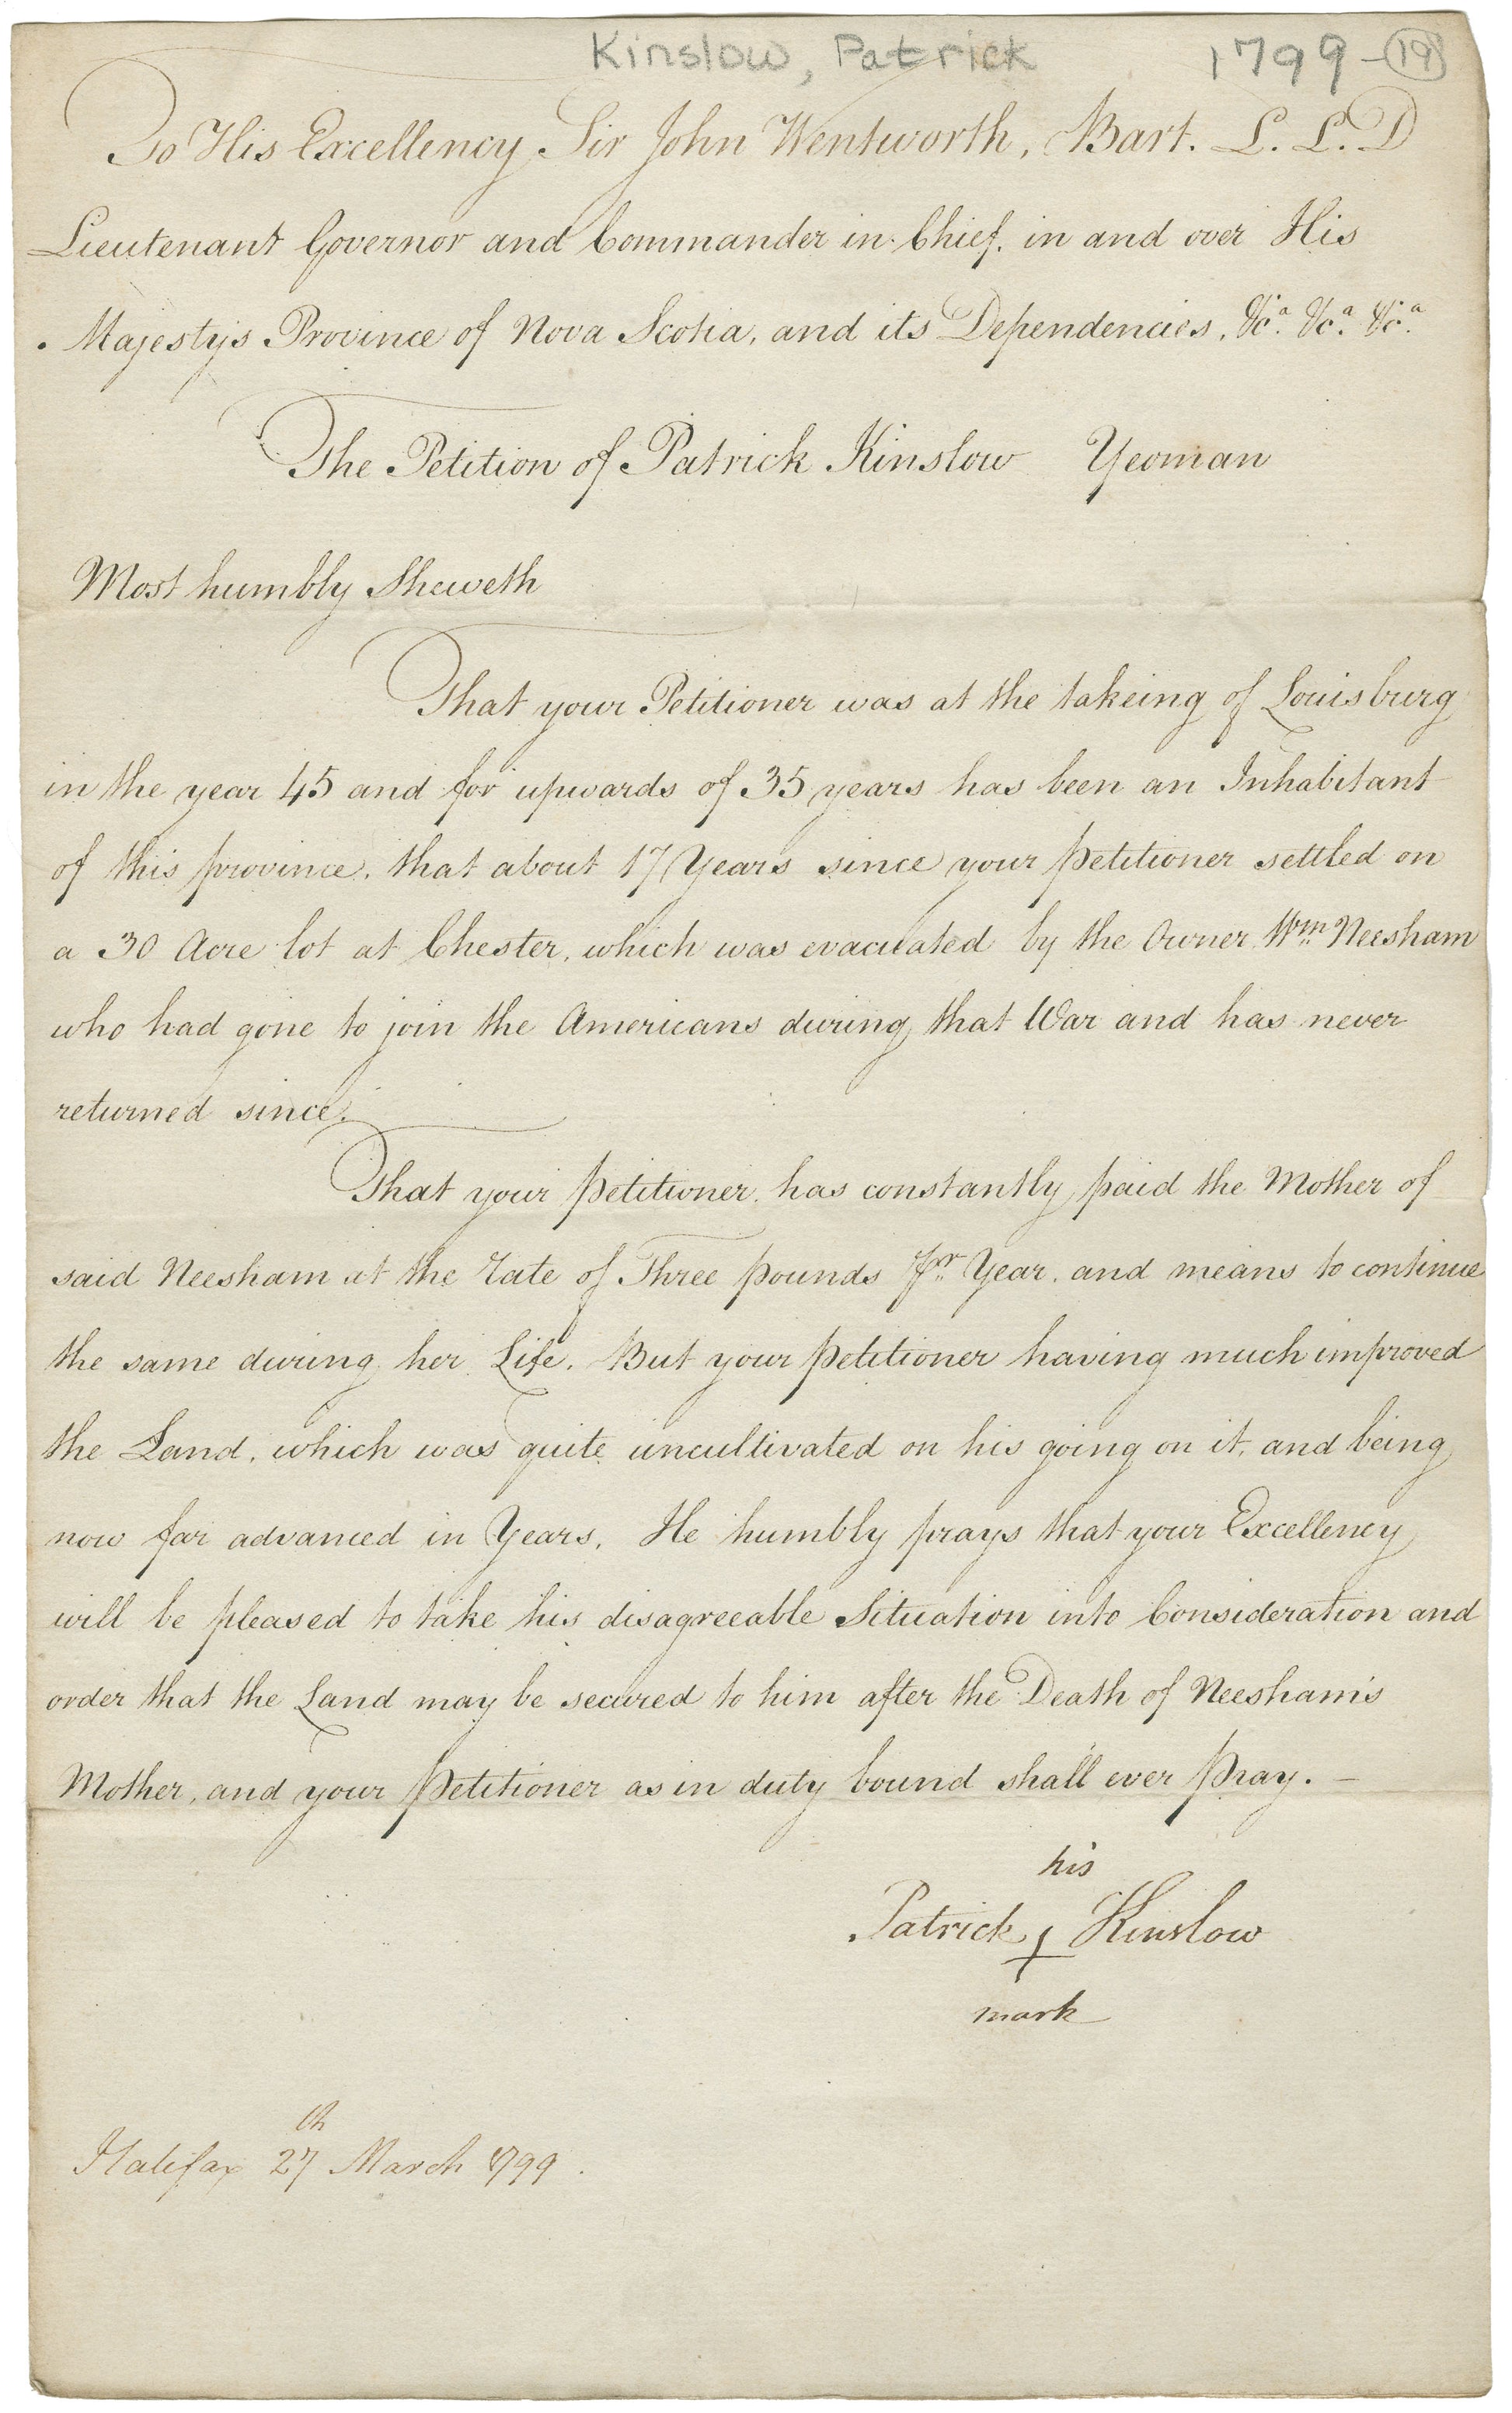 Kinslow, Patrick 1799-(19)
To His Excellency Sir John Wentworth, Bart. L. L. D
Lieutenant Governor and Commander in Chief, in and over His
Majestys Province of Nova Scotia, and its Dependencies, &c.a &c.a &c.a
The Petition of Patrick Kinslow Yeoman
Most humbly Sheweth
That your Petitioner was at the takeing of Louisburg
in the year 45 and for upwards of 35 years has been an Inhabitant
of this province, that about 17 Years since your petitioner settled on
a 30 Acre lot at Chester, which was evacuated by the Owner Wm Neesham
who had gone to join the Americans during that War and has never
returned since.
That your petitioner, has constantly paid the Mother of
said Neesham at the rate of Three pounds Pr Year, and means to continue
the same during her Life. But your petitioner having much improved
the Land, which was quite uncultivated on his going on it, and being
now far advanced in Years, He humbly prays that your Excellency
will be pleased to take his disagreeable Situation into Consideration and
order that the Land may be secured to him after the Death of Neesham's
Mother, and your Petitioner as in duty bound shall ever pray. —
his
Patrick + Kinslow
mark
Halifax 27th March 1799.